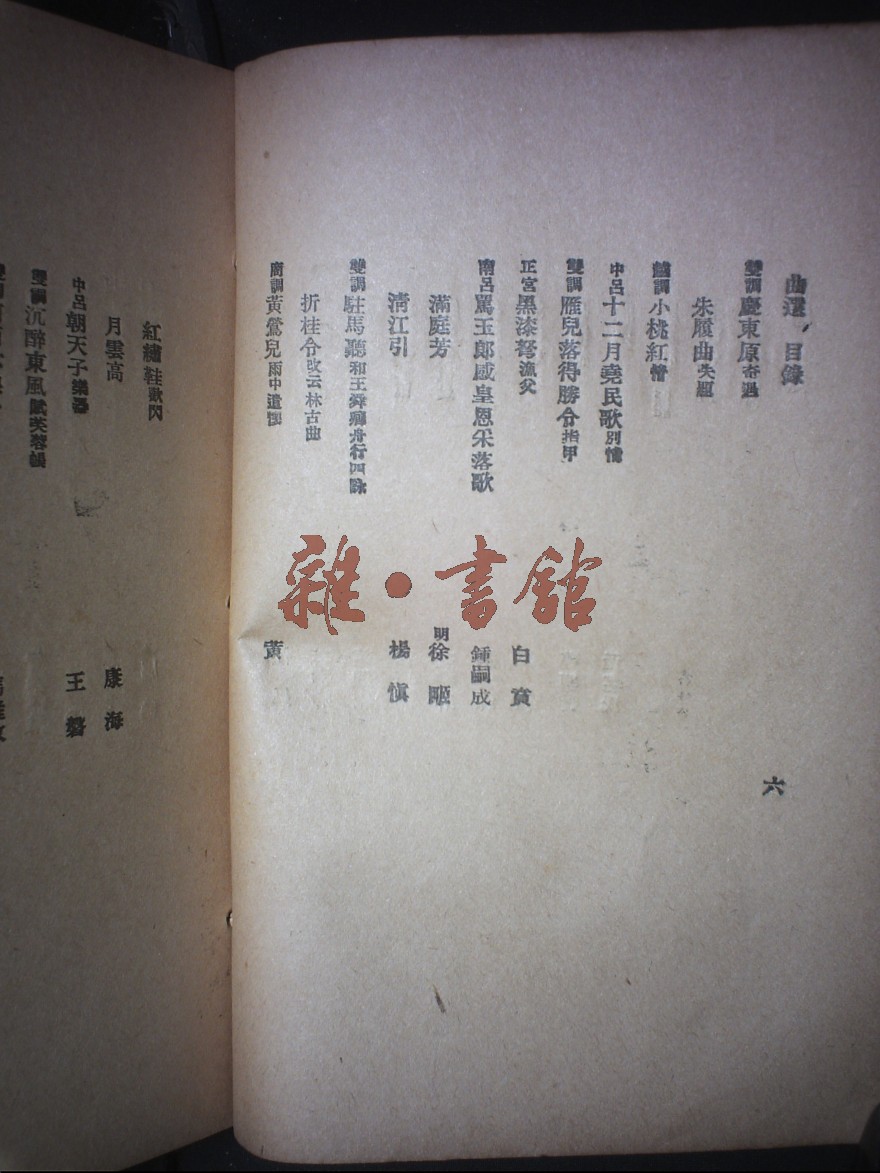 曲選 目錄
雙調慶東原奇遇
朱履曲失題
越調小桃紅情
中呂十二月堯民歌別情
雙調雁兒落得勝令指甲
正宮黑漆弩漁父 白賁
南呂罵玉郎感皇恩采茶歌 鍾嗣成
滿庭芳 明徐𤱻
清江引 楊慎
雙調駐馬聽和王舜卿舟行四詠
折桂令改云林古曲
商調黃鶯兒雨中遣懷 黃
六
雜·書館
紅繡鞋
月雲高 康海
中呂朝天子樂器 王磐
雙調沉醉東風